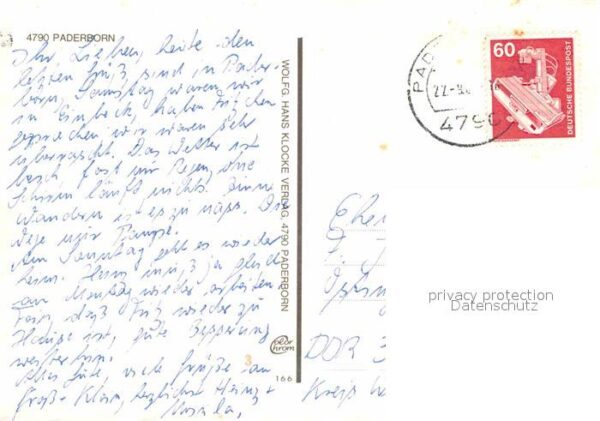 4790 PADERBORN
Ihr Lieben, heute den
letzten Gruß, sind in Pader-
born, Samstag waren wir
in Einbeck, haben
gesprochen wir waren sehr
überrascht. Das Wetter ist
fast nur Regen, ohne
Schirm läuft nichts.
Wandern ist es zu naß. Die
Wege nur Pampe.
Am Sonntag geht es wieder
heim. Heinz muß ja gleich
am Montag wieder arbeiten.
daß Fritz wieder zu
Hause ist, gute Besserung
weiterhin.
Alles Gute, viele Grüße an
Groß + Klein, herzlichst Heinz +
Ursula,
WOLFG. HANS KLOCKE VERLAG, 4790 PADERBORN
color
chrom
3
166
PAD
22.-9.
4790
60
DEUTSCHE BUNDESPOST
DDR
Kreis
privacy protection
Datenschutz